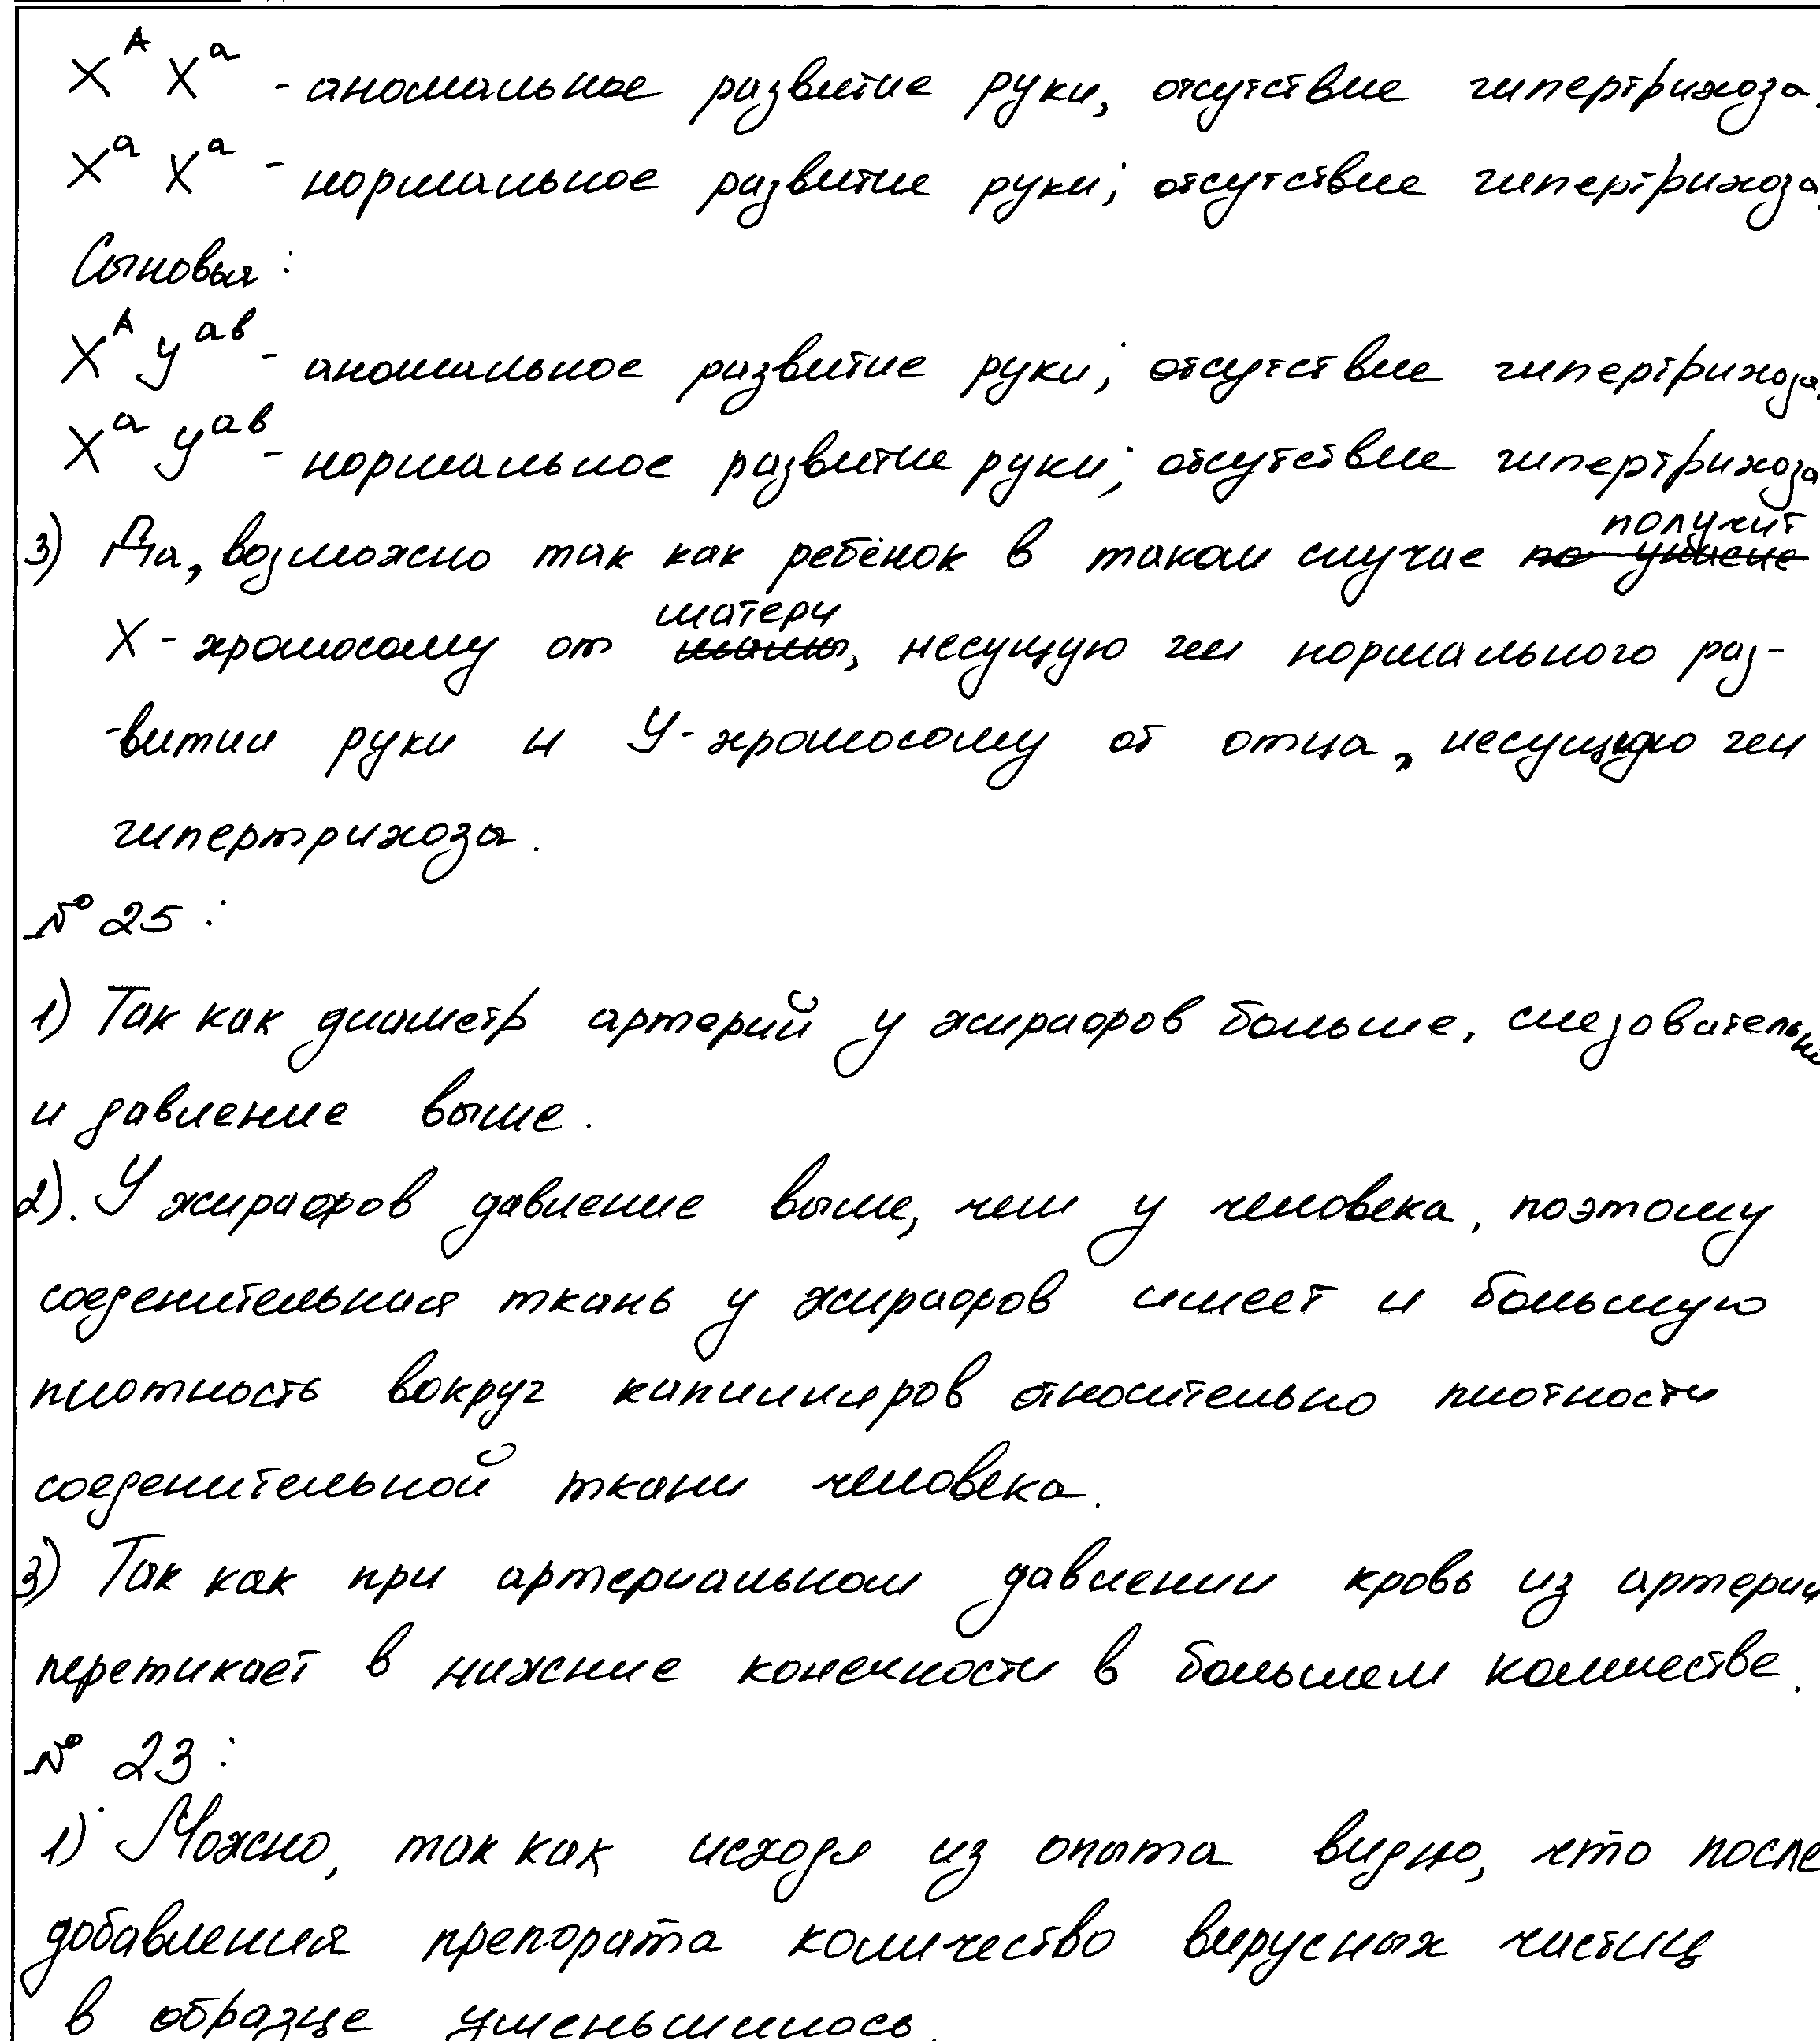 X^A X^a - аномальное развитие руки, отсутствие гипертрихоза.
X^a X^a - нормальное развитие руки; отсутствие гипертрихоза.
Сыновья:
X^A У^ав - аномальное развитие руки; отсутствие гипертрихоза.
X^a У^ав - нормальное развитие руки; отсутствие гипертрихоза
3) Да, возможно так как ребёнок в таком случае получит
Х-хромосому от матери, несущую ген нормального раз-
-вития руки и У-хромосому от отца, несущую ген
гипертрихоза.
№ 25:
1) Так как диаметр артерий у жирафов больше, следовательно
и давление выше.
2). У жирафов давление выше, чем у человека, поэтому
соеденительная ткань у жирафов имеет и большую
плотность вокруг капилляров относительно плотности
соеденительной ткани человека.
3) Так как при артериальном давлении кровь из артерии
перетикает в нижние конечности в большем количестве.
№ 23:
1) Можно, так как исходя из опыта видно, что после
добавления препората количество вирусных частиц
в образце уменьшилось.